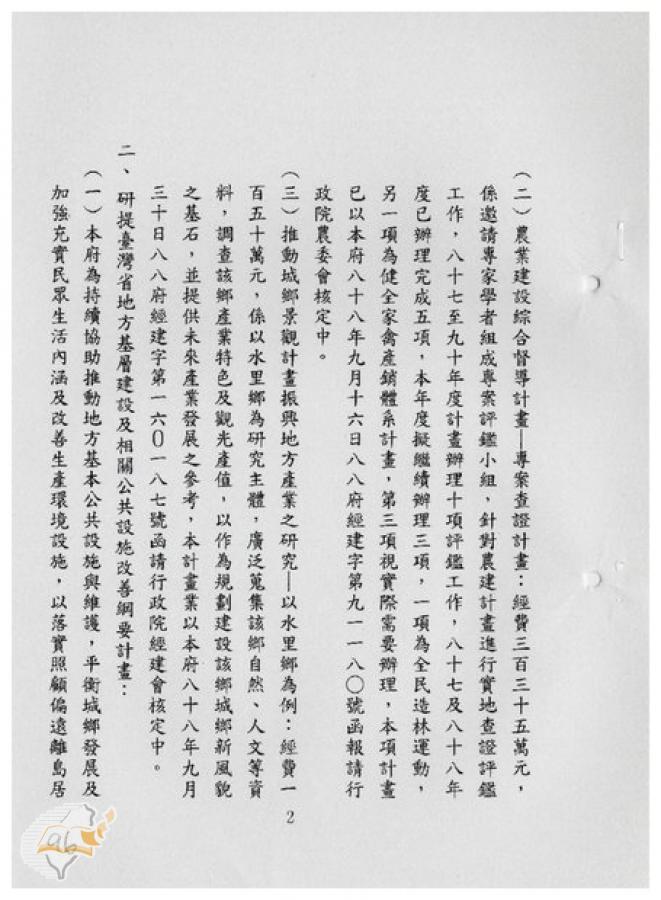 (二)農業建設綜合督導計畫—專案查證計畫：經費三百三十五萬元，
係邀請專家學者組成專案評鑑小組、針對農建計畫進行實地查證評鑑
工作，八十七至九十年度計畫辦理十項評鑑工作，八十七及八十八年
度已辦理完成五項，本年度擬繼續辦理三項，一項為全民造林運動，
另一項為健全家禽產銷體系計畫，第三項視實際需要辦理，本項計畫
已以本府八十八年九月十六日八八府經建字第九一一八〇號函報請行
政院農委會核定中。
(三)推動城鄉景觀計畫振興地方產業之研究—以水里鄉為例：經費一
百五十萬元，係以水里鄉為研究主體，廣泛蒐集該鄉自然、人文等資
料，調查該鄉產業特色及觀光產值，以作為規劃建設該鄉城鄉新風貌
之基石，並提供未來產業發展之參考，本計畫業以本府八十八年九月
三十日八八府經建字第一六〇一八七號函請行政院經建會核定中。
二、研提臺灣省地方基層建設及相關公共設施改善綱要計畫：
(一)本府為持續協助推動地方基本公共設施與維護，平衡城鄉發展及
加強充實民眾生活內涵及改善生產環境設施，以落實照顧偏遠離島居
2
ab